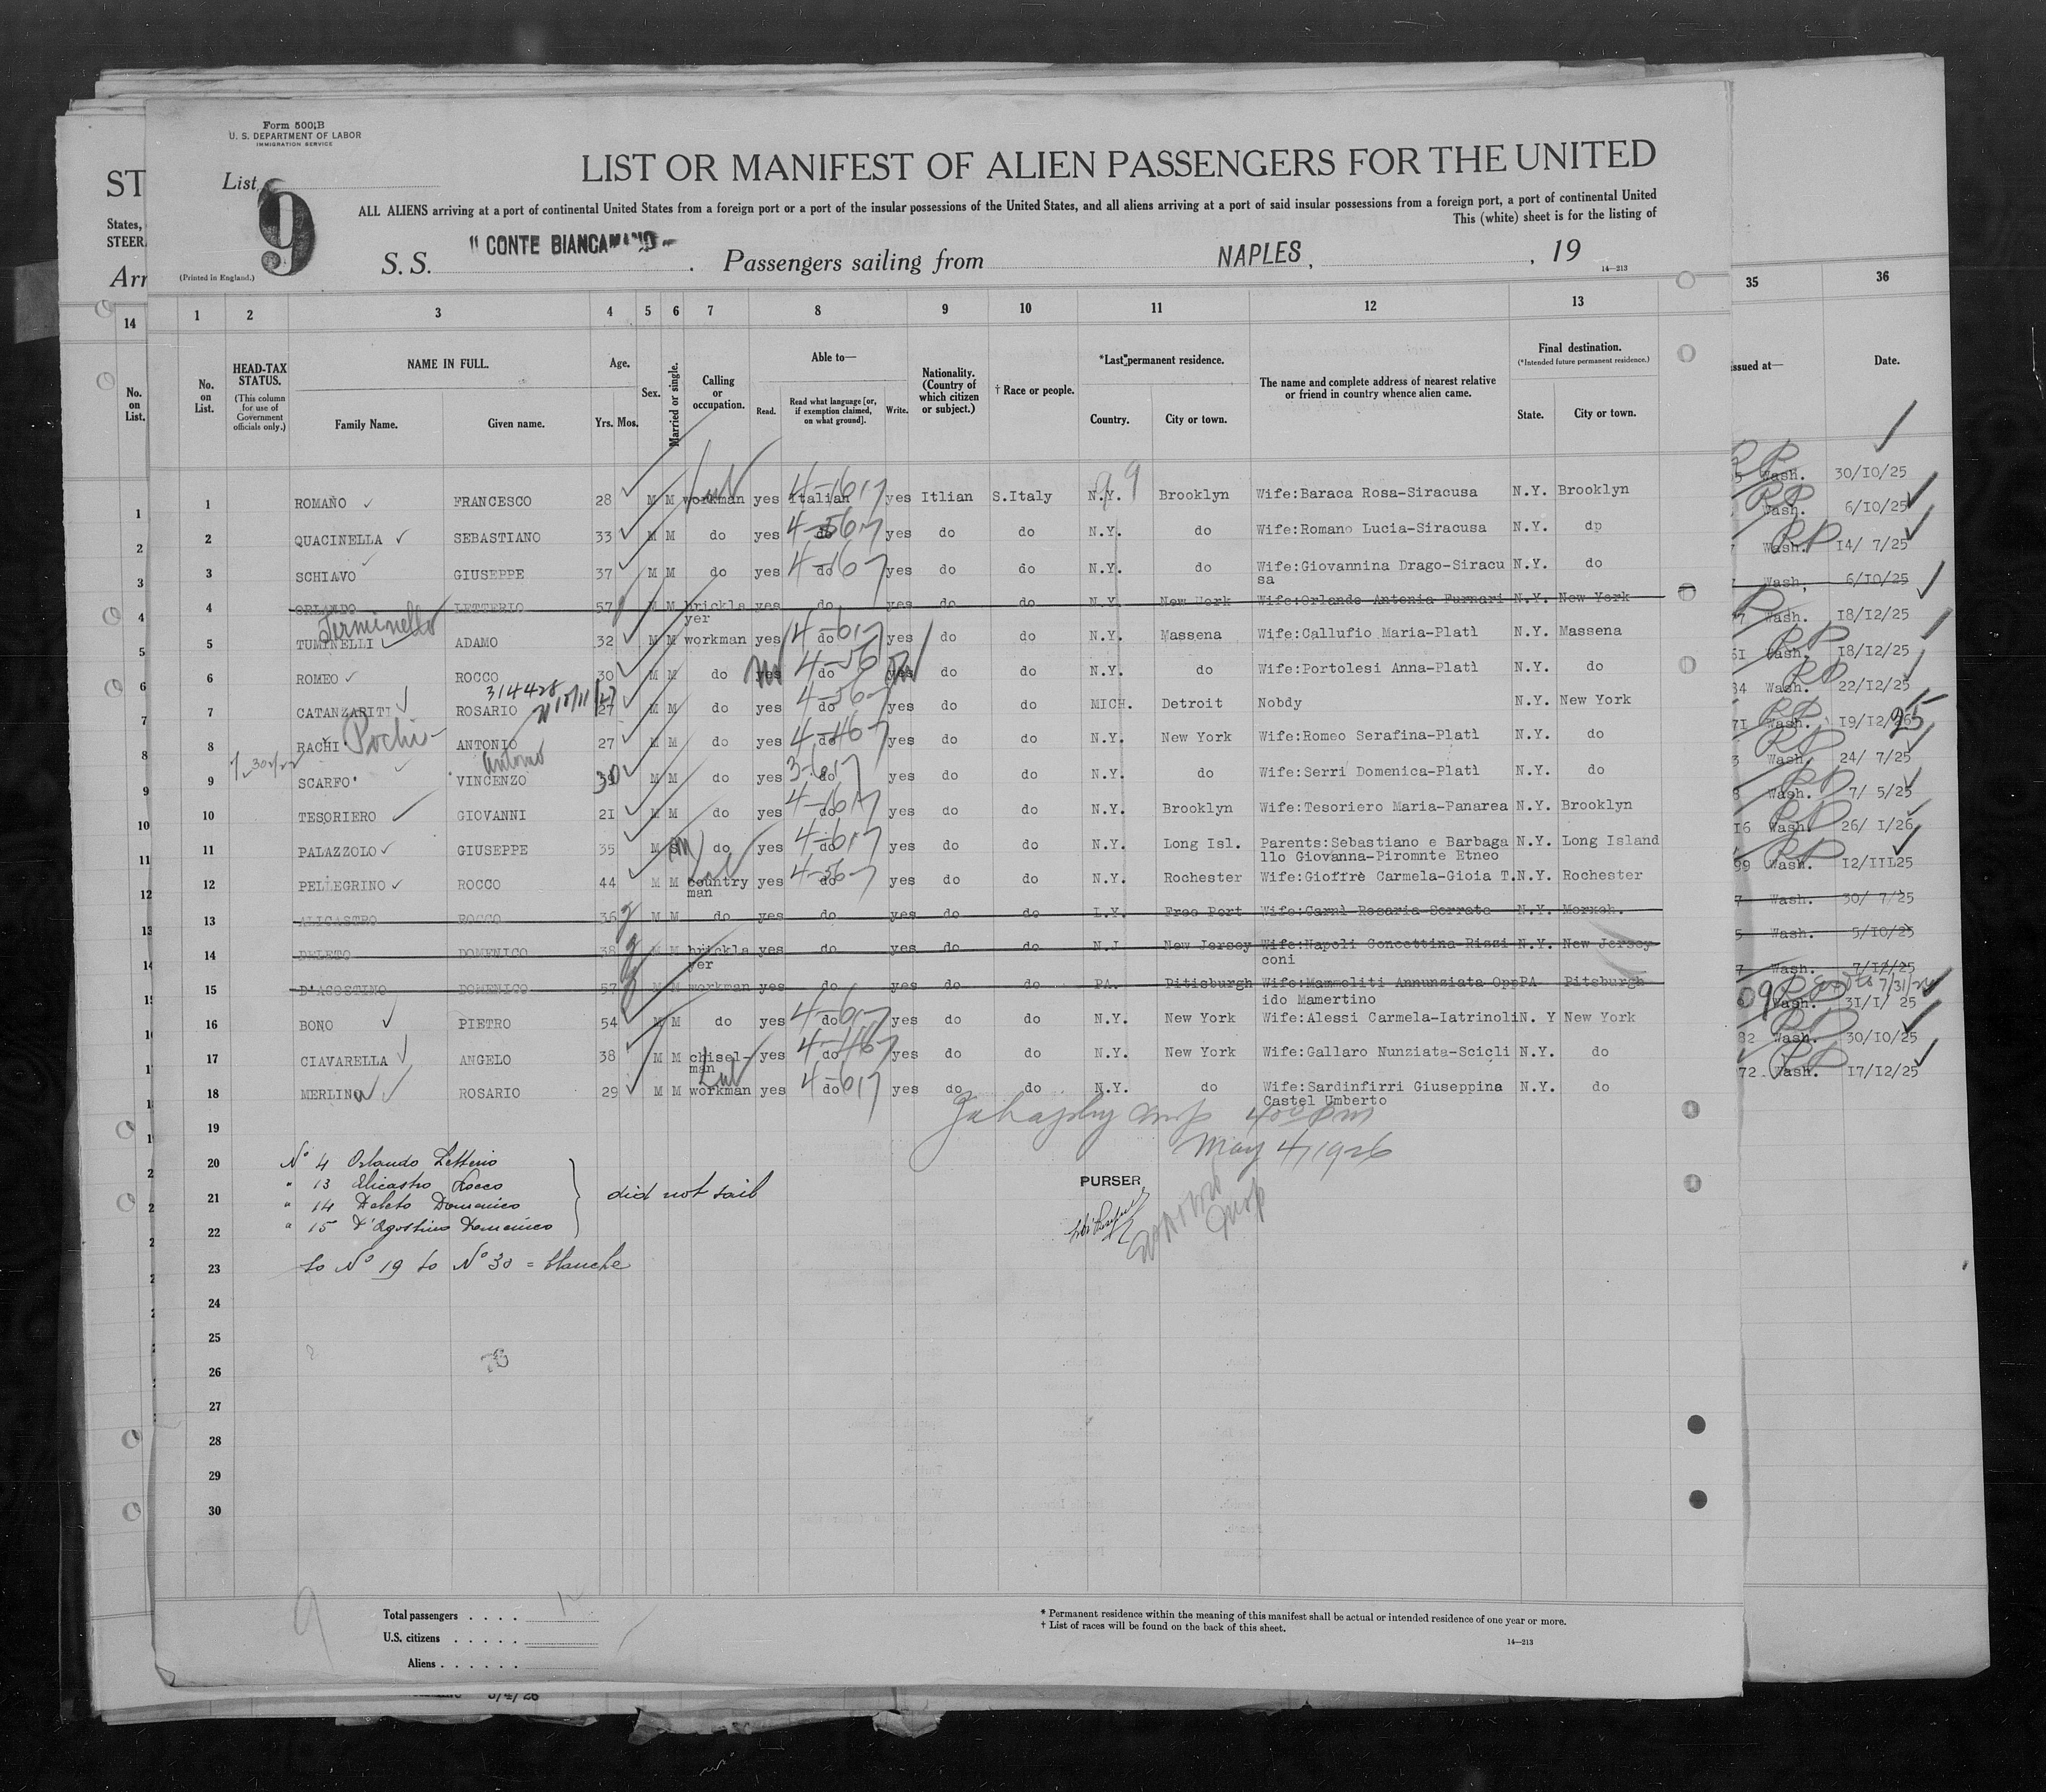 Form 500 B
U. S. DEPARTMENT OF LABOR
IMMIGRATION SERVICE
List 9
LIST OR MANIFEST OF ALIEN PASSENGERS FOR THE UNITED
ALL ALIENS arriving at a port of continental United States from a foreign port or a port of the insular possessions of the United States, and all aliens arriving at a port of said insular possessions from a foreign port, a port of continental United
This (white) sheet is for the listing of
(Printed in England.)
S. S. "CONTE BIANCAMANO" Passengers sailing from NAPLES, , 19
14—213
ST
States,
STEER
Arr
14
No. on List.
1 2 3 4 5 6 7 8 9 10 11 12 13
35 36
No. on List.
HEAD-TAX STATUS.
(This column for use of Government officials only.)
NAME IN FULL.
Family Name. Given name.
Age.
Yrs. Mos.
Sex.
Married or single.
Calling or occupation.
Able to—
Read. Read what language [or, if exemption claimed, on what ground]. Write.
Nationality. (Country of which citizen or subject.)
† Race or people.
*Last permanent residence.
Country. City or town.
The name and complete address of nearest relative or friend in country whence alien came.
Final destination.
(*Intended future permanent residence.)
State. City or town.
issued at— Date.
1 ROMANO FRANCESCO 28 M M workman yes Italian yes Itlian S.Italy N.Y. Brooklyn Wife:Baraca Rosa-Siracusa N.Y. Brooklyn Wash. 30/10/25
2 QUACINELLA SEBASTIANO 33 M M do yes do yes do do N.Y. do Wife:Romano Lucia-Siracusa N.Y. dp Wash. 6/10/25
3 SCHIAVO GIUSEPPE 37 M M do yes do yes do do N.Y. do Wife:Giovannina Drago-Siracu N.Y. do Wash. 14/ 7/25
sa
4 ORLANDO LETTERIO 57 M M brickla yes do yes do do N.Y. New York Wife:Orlando Antonia Furnari N.Y. New York Wash. 6/10/25
yer
Terminello
5 TUMINELLI ADAMO 32 M M workman yes do yes do do N.Y. Massena Wife:Callufio Maria-Platì N.Y. Massena Wash. 18/12/25
6 ROMEO ROCCO 30 M M do yes do yes do do N.Y. do Wife:Portolesi Anna-Platì N.Y. do Wash. 18/12/25
314428
7 CATANZARITI ROSARIO 27 M M do yes do yes do do MICH. Detroit Nobdy N.Y. New York Wash. 22/12/25
8 RACHI Pochi ANTONIO 27 M M do yes do yes do do N.Y. New York Wife:Romeo Serafina-Platì N.Y. do Wash. 19/12/25
Antonio
9 SCARFO VINCENZO 30 M M do yes do yes do do N.Y. do Wife:Serri Domenica-Platì N.Y. do Wash. 24/ 7/25
10 TESORIERO GIOVANNI 21 M M do yes do yes do do N.Y. Brooklyn Wife:Tesoriero Maria-Panarea N.Y. Brooklyn Wash. 7/ 5/25
11 PALAZZOLO GIUSEPPE 35 M do yes do yes do do N.Y. Long Isl. Parents:Sebastiano e Barbaga N.Y. Long Island Wash. 26/ 1/26
llo Giovanna-Piromnte Etneo
12 PELLEGRINO ROCCO 44 M M country yes do yes do do N.Y. Rochester Wife:Gioffrè Carmela-Gioia T. N.Y. Rochester Wash. 12/III25
man
13 ALICASTRO ROCCO 36 M M do yes do yes do do L.Y. Free Port Wife:Carnì Rosaria-Serrata N.Y. Wash. 30/ 7/25
14 DELETO DOMENICO 38 M M brickla yes do yes do do N.J New Jersey Wife:Napoli Concettina-Rizzi N.Y. New Jersey Wash. 5/10/25
yer coni
15 D'AGOSTINO DOMENICO 57 M M workman yes do yes do do PA. Pitisburgh Wife:Mammoliti Annunziata-Opp PA Pitsburgh Wash. 7/12/25
ido Mamertino
16 BONO PIETRO 54 M M do yes do yes do do N.Y. New York Wife:Alessi Carmela-Iatrinoli N. Y New York Wash. 31/1/ 25
17 CIAVARELLA ANGELO 38 M M chisel- yes do yes do do N.Y. New York Wife:Gallaro Nunziata-Scicli N.Y. do Wash. 30/10/25
man
18 MERLINO ROSARIO 29 M M workman yes do yes do do N.Y. do Wife:Sardinfirri Giuseppina N.Y. do Wash. 17/12/25
Castel Umberto
19
May 4, 1926
20 No 4 Orlando Letterio
" 13 Alicastro Rocco
21 " 14 Deleto Domenico did not sail
22 " 15 D'Agostino Domenico
PURSER
23 to No 19 to No 30 = blanche
24
25
26
27
28
29
30
9
Total passengers . . . .
U.S. citizens . . . . .
Aliens . . . . . .
* Permanent residence within the meaning of this manifest shall be actual or intended residence of one year or more.
† List of races will be found on the back of this sheet.
14—213
5/4/26